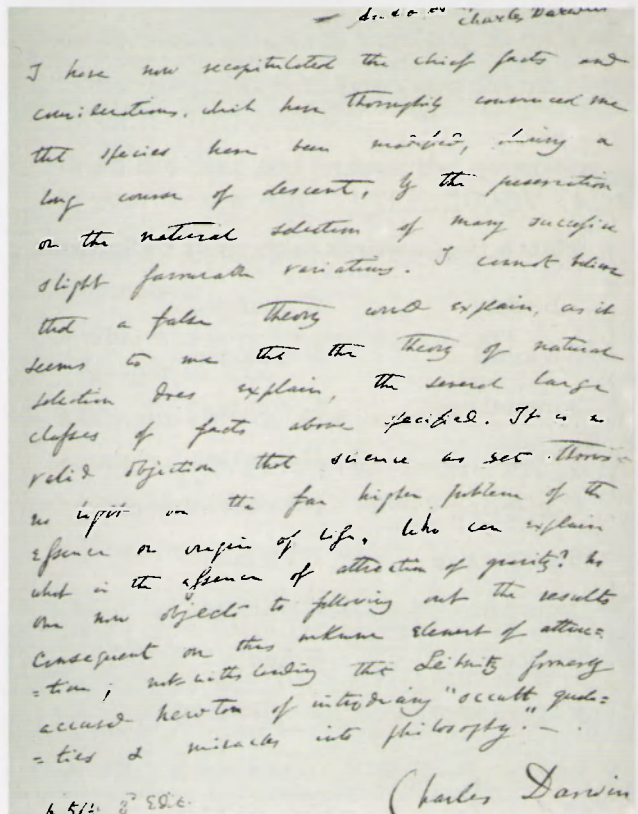 Charles Darwin
I have now recapitulated the chief facts and
considerations, which have thoroughly convinced me
that species have been modified, during a
long course of descent, by the preservation
or the natural selection of many successive
slight favourable variations. I cannot believe
that a false theory would explain, as it
seems to me that the theory of natural
selection does explain, the several large
classes of facts above specified. It is no
valid objection that science as yet throws
no light on the far higher problem of the
essence or origin of life. Who can explain
what is the essence of attraction of gravity? No
one now objects to following out the results
consequent on this unknown element of attrac=
=tion; notwithstanding that Leibnitz formerly
accused Newton of introducing "occult quali=
=ties & miracles into philosophy." —
Charles Darwin
3d Edit.